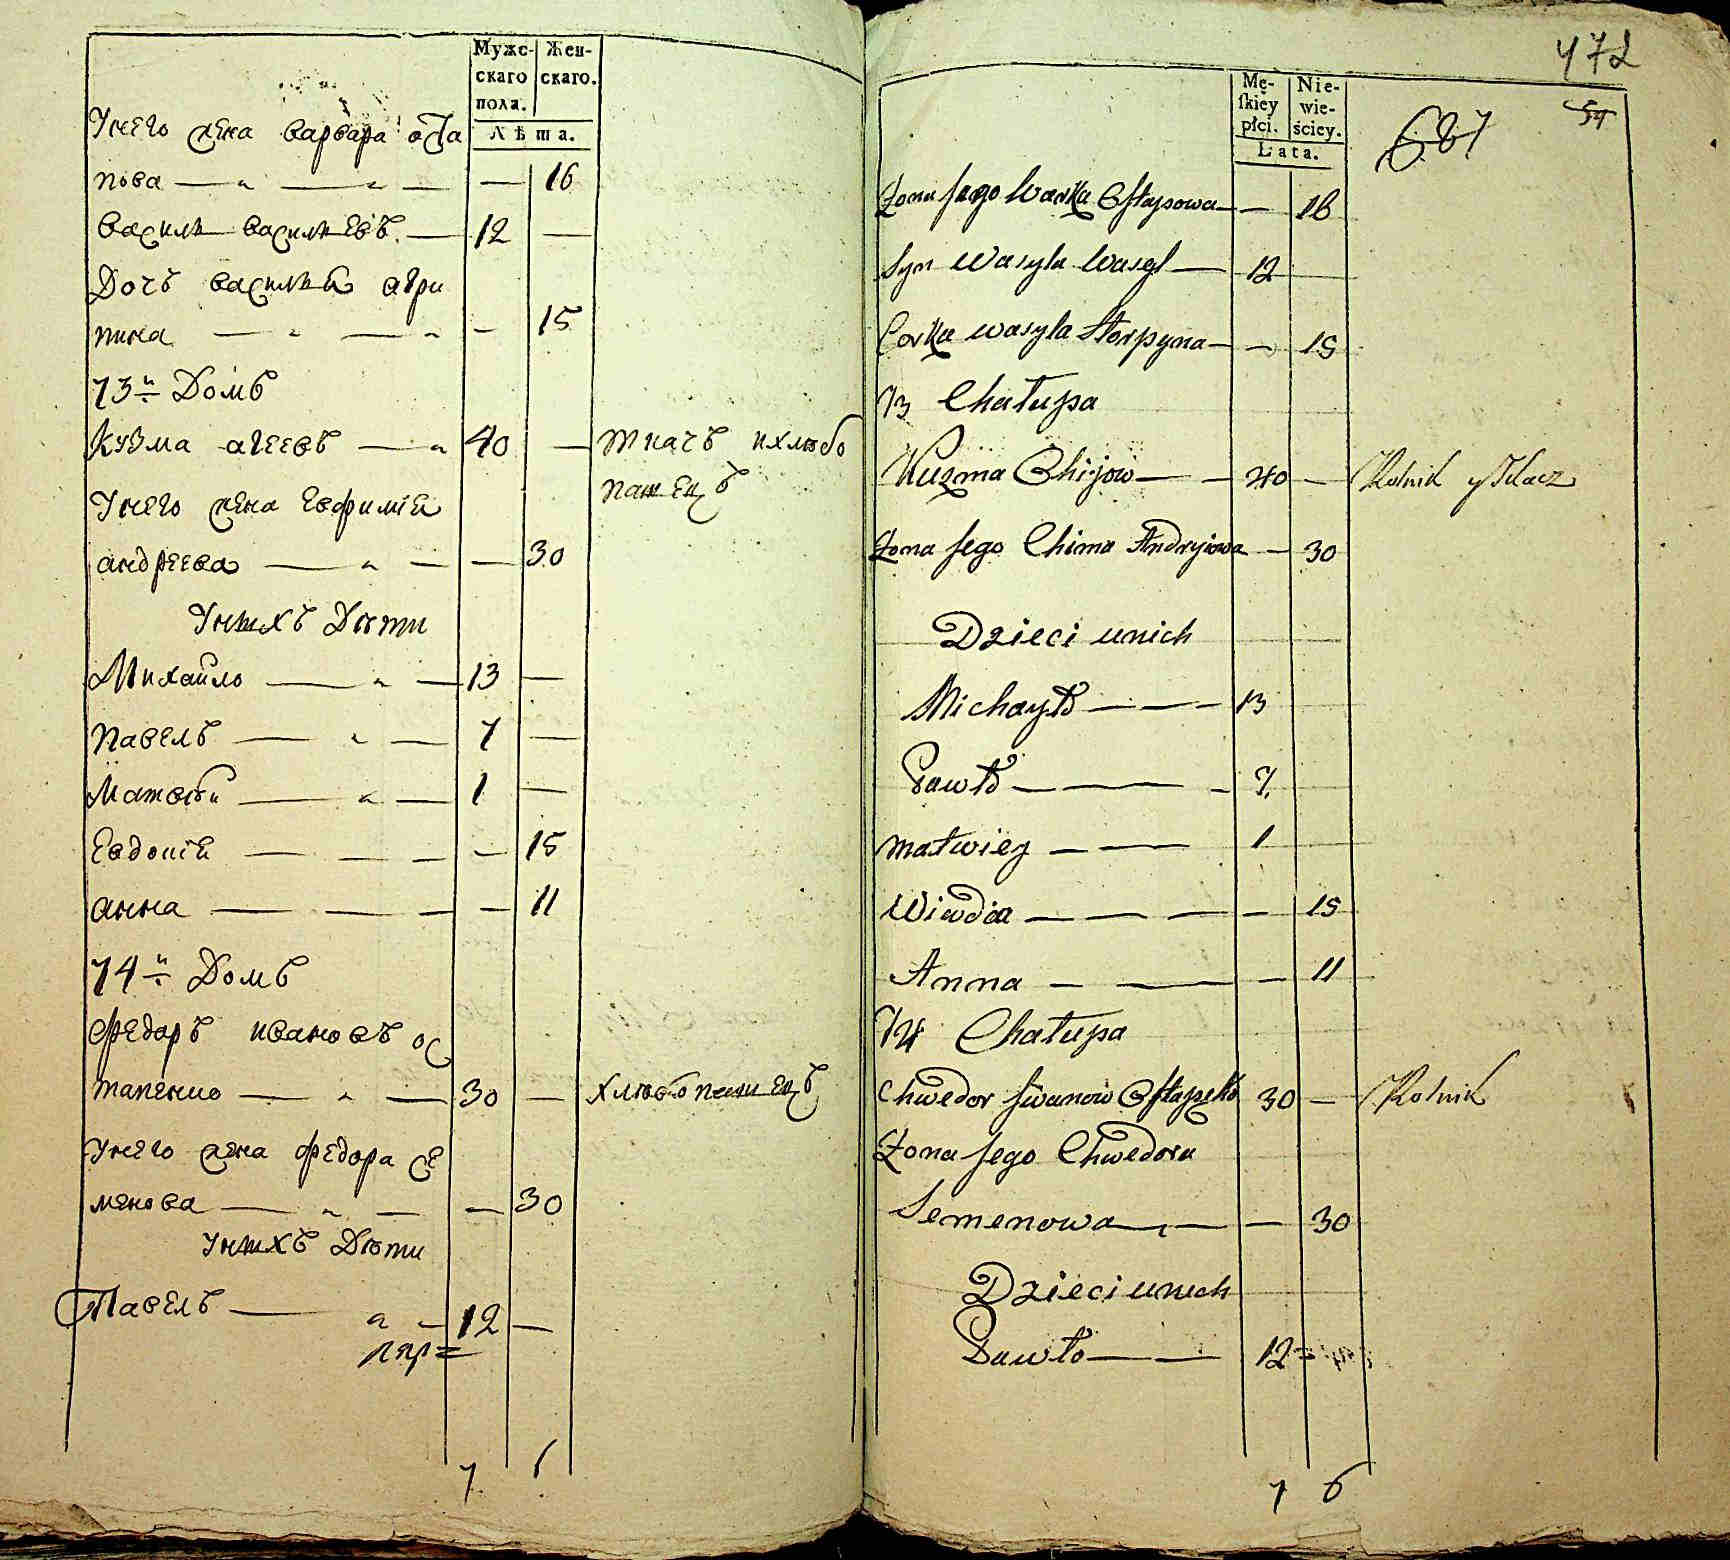 Мужс- Жен-
скаго скаго.
пола.
Лѣта.
Унего жена варвара оста
пова — — — 16
василь васильевъ — 12 —
Дочь василья агри
пина — — — 15
73й Домъ
Кузма агеевъ — 40 — ткачь ихлѣбо
пашецъ
Унего жена Евфимія
андреева — — — 30
Унихъ Дѣти
Михайло — — 13 —
Павелъ — — 7 —
Матвѣй — — 1 —
Евдокія — — — 15
анна — — — 11
74й Домъ
Федоръ ивановъ ос
тапенко — — 30 — хлѣбопашецъ
Унего жена федора се
менова — — — 30
Унихъ Дѣти
Павелъ — 12 —
7 6
472
54
687
Mę- Nie-
skiey wie-
płci. ściey.
Lata.
Żona Jego Warka Ostapowa — 16
Syn Wasyla Wasyl — 12
Corka wasyla Horpyna — — 15
73 Chałupa
Kuzma Ohijow — — 40 — Rolnik y Tkacz
Żona Jego Chima Andryiowa — 30
Dzieci unich
Michayło — — — 13
Pawło — — — 7
Matwiey — — 1
Wiwdia — — — — 15
Anna — — — 11
74 Chałupa
Chwedor Iwanow Ostapenko 30 — Rolnik
Żona Jego Chwedora
Semenowa — — — 30
Dzieci unich
Pawło — — 12
7 6